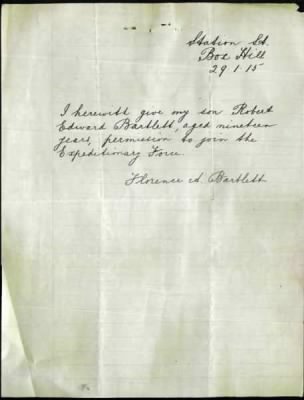 Station St.
Box Hill
29.1.15
I herewith give my son Robert
Edward Bartlett, aged nineteen
years, permission to join the
Expeditionary Force.
Florence M. Bartlett